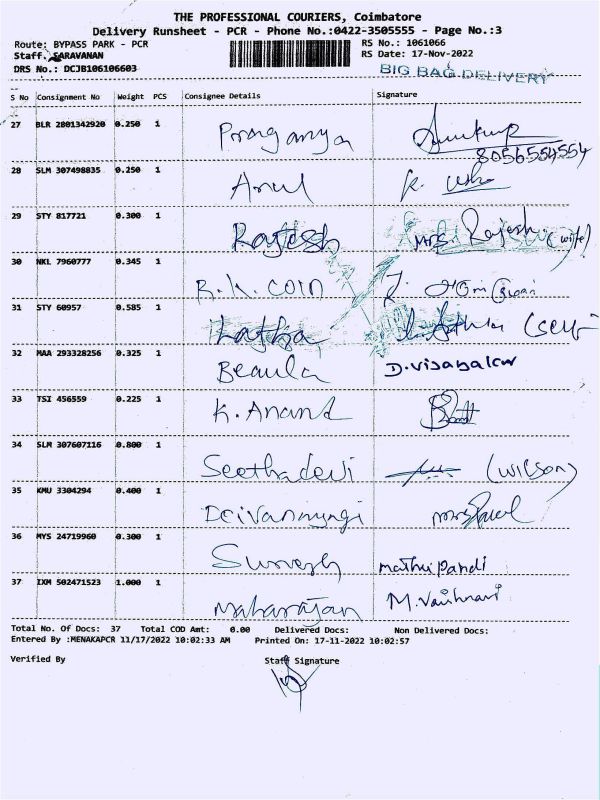 THE PROFESSIONAL COURIERS, Coimbatore
Delivery Runsheet - PCR - Phone No.:0422-3505555 - Page No.:3
Route: BYPASS PARK - PCR RS No.: 1061066
Staff. SARAVANAN RS Date: 17-Nov-2022
DRS No.: DCJB106106603 BIG BAG DELIVERY
S No Consignment No Weight PCS Consignee Details Signature
27 BLR 2801342920 0.250 1 Praganya
8056554554
28 SLM 307498835 0.250 1 Arul K. Usha
29 STY 817721 0.300 1 Rajesh Mrs. Rajesh (wife)
30 NKL 7960777 0.345 1 R.K. COIN
31 STY 60957 0.585 1 Latha (self)
32 MAA 293328256 0.325 1 Beaula D. Vijayalaxmi
33 TSI 456559 0.225 1 K. Anand
34 SLM 307607116 0.800 1 Seethadevi (WILSON)
35 KMU 3304294 0.400 1
36 MYS 24719960 0.300 1 Suresh Mathupandi
37 IXM 502471523 1.000 1 Maharajan M. Vaishnavi
Total No. Of Docs: 37 Total COD Amt: 0.00 Delivered Docs: Non Delivered Docs:
Entered By :MENAKAPCR 11/17/2022 10:02:33 AM Printed On: 17-11-2022 10:02:57
Verified By Staff Signature